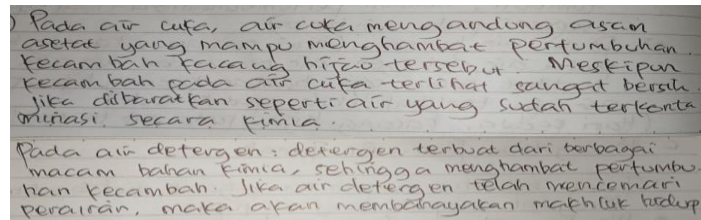 ) Pada air cuka, air cuka mengandung asam
asetat yang mampu menghambat pertumbuhan
kecambah kacang hijau tersebut. Meskipun
kecambah pada air cuka terlihat sangat bersih.
Jika diibaratkan seperti air yang sudah terkonta
minasi secara kimia.
Pada air detergen : detergen terbuat dari berbagai
macam bahan kimia, sehingga menghambat pertumbu
han kecambah. Jika air detergen telah mencemari
perairan, maka akan membahayakan makhluk hidup